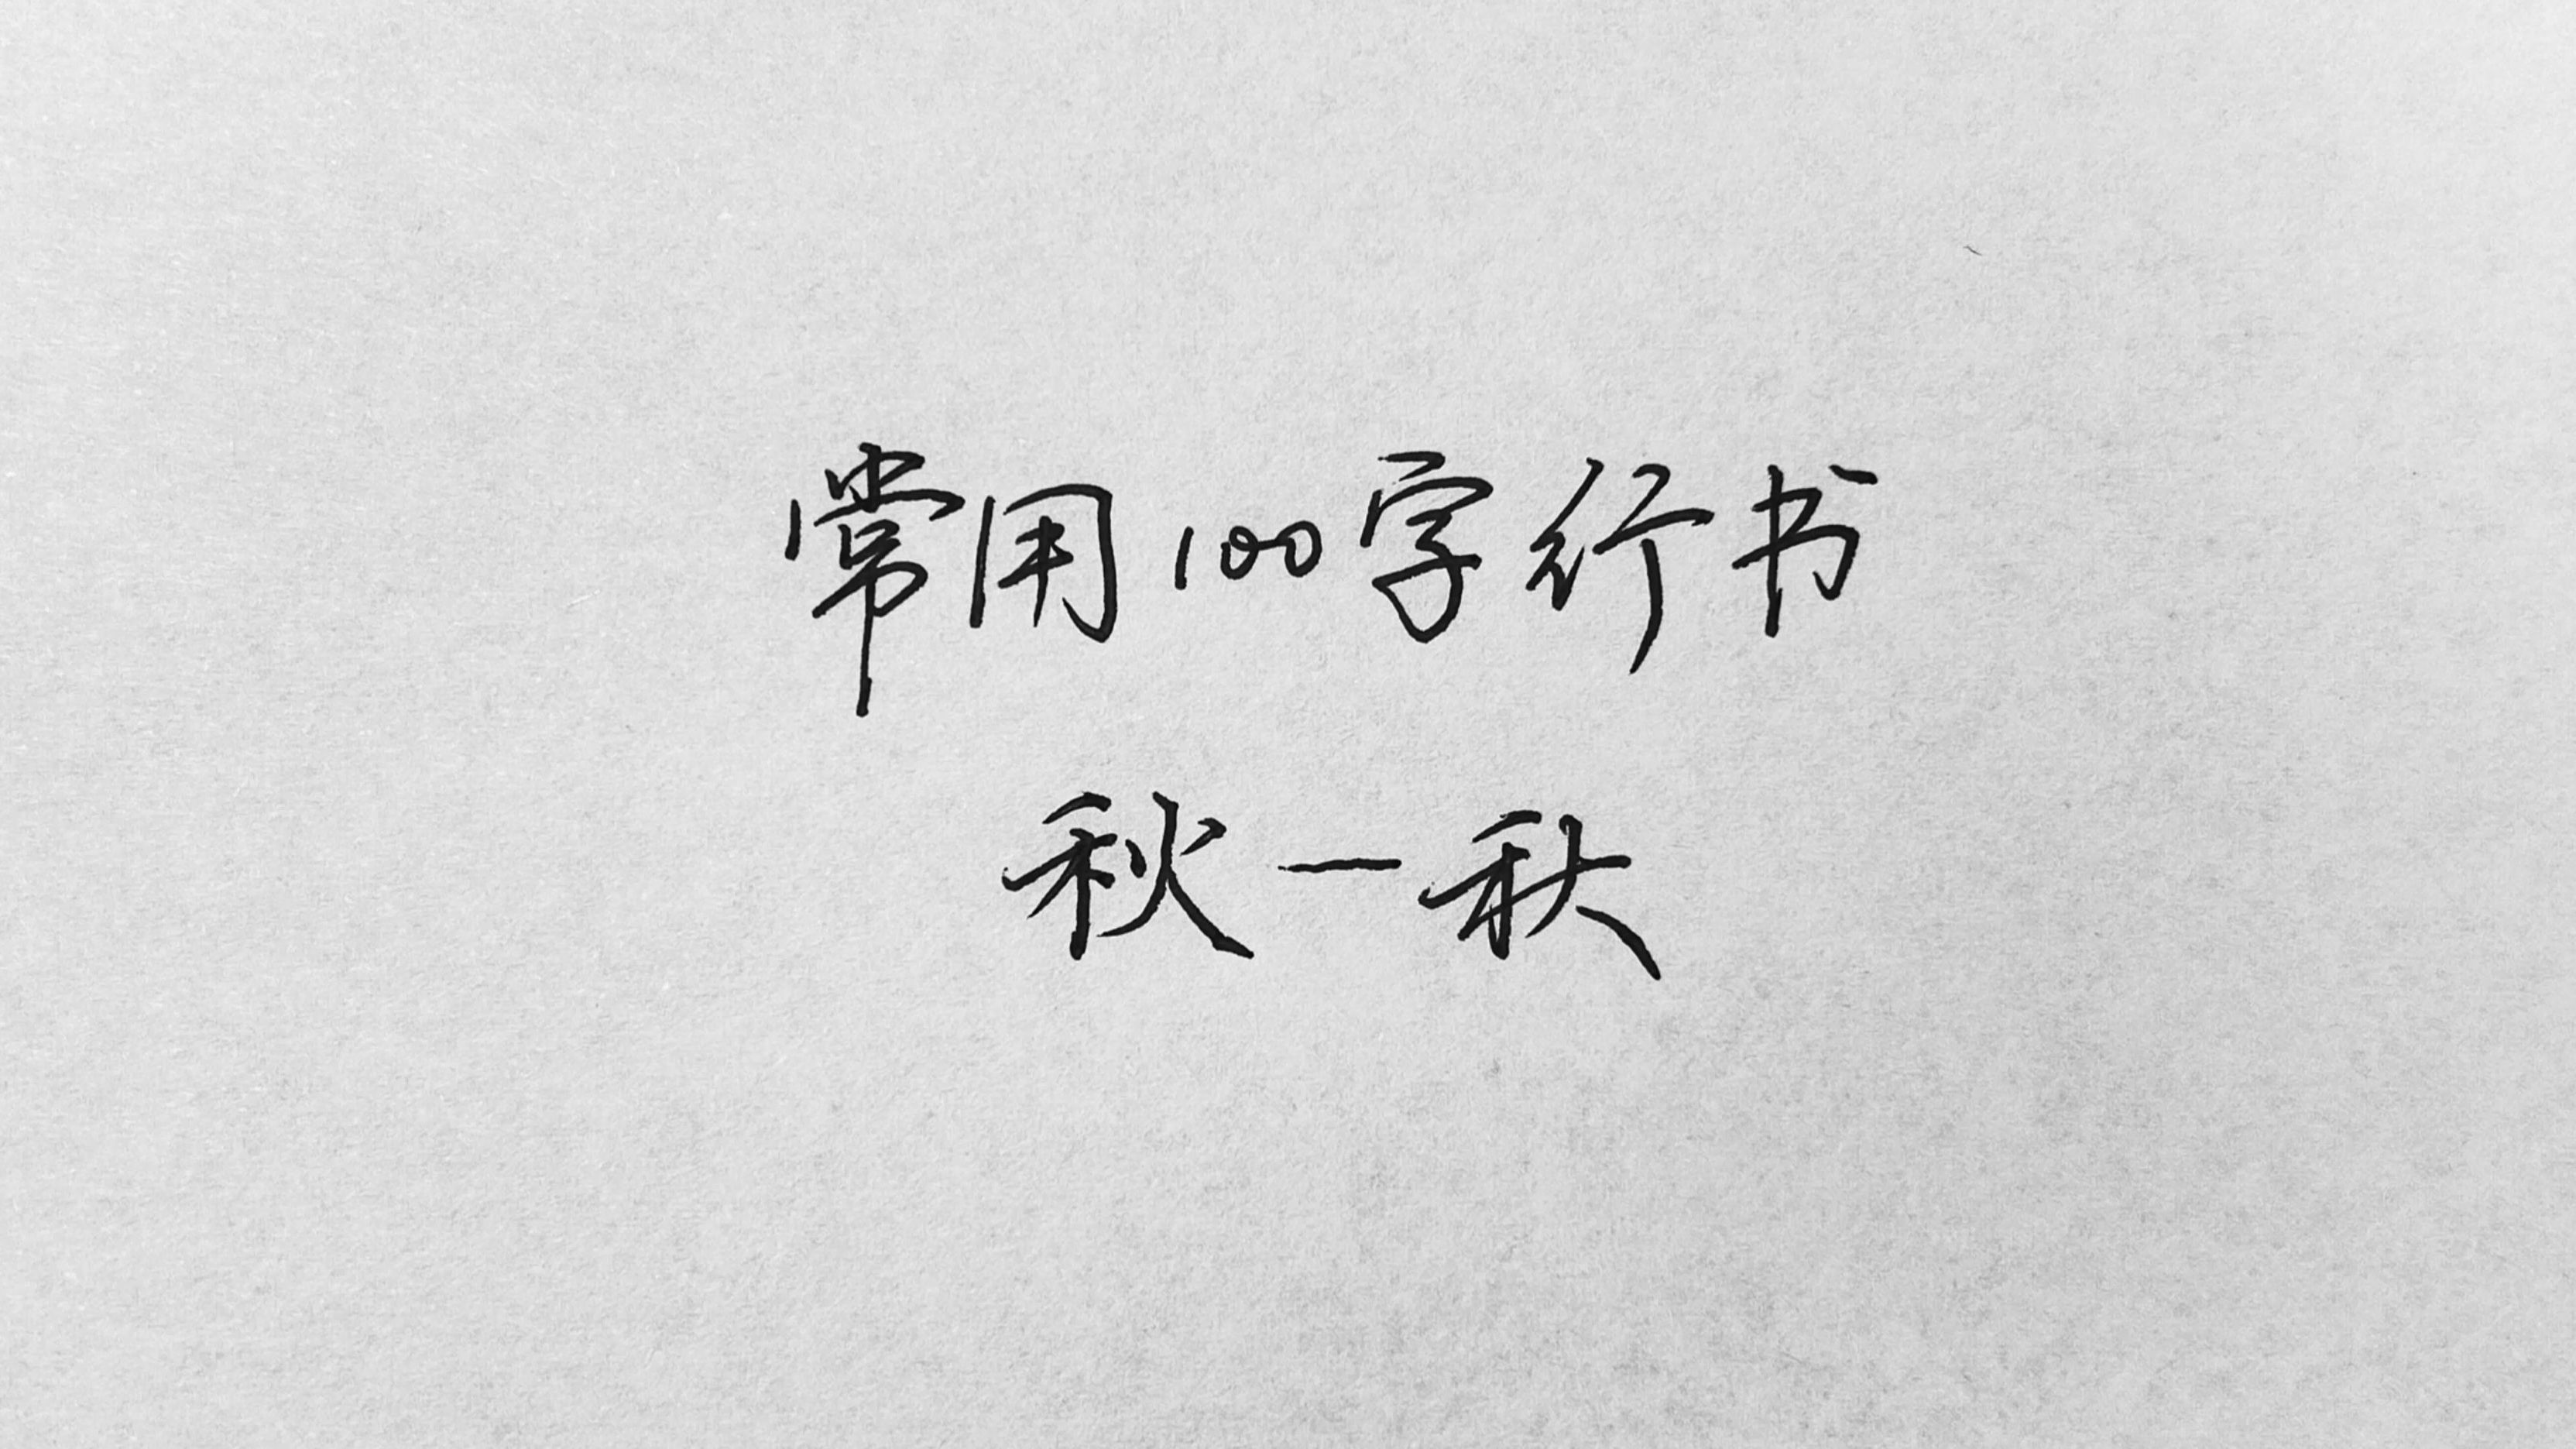 常用100字行书
秋一秋